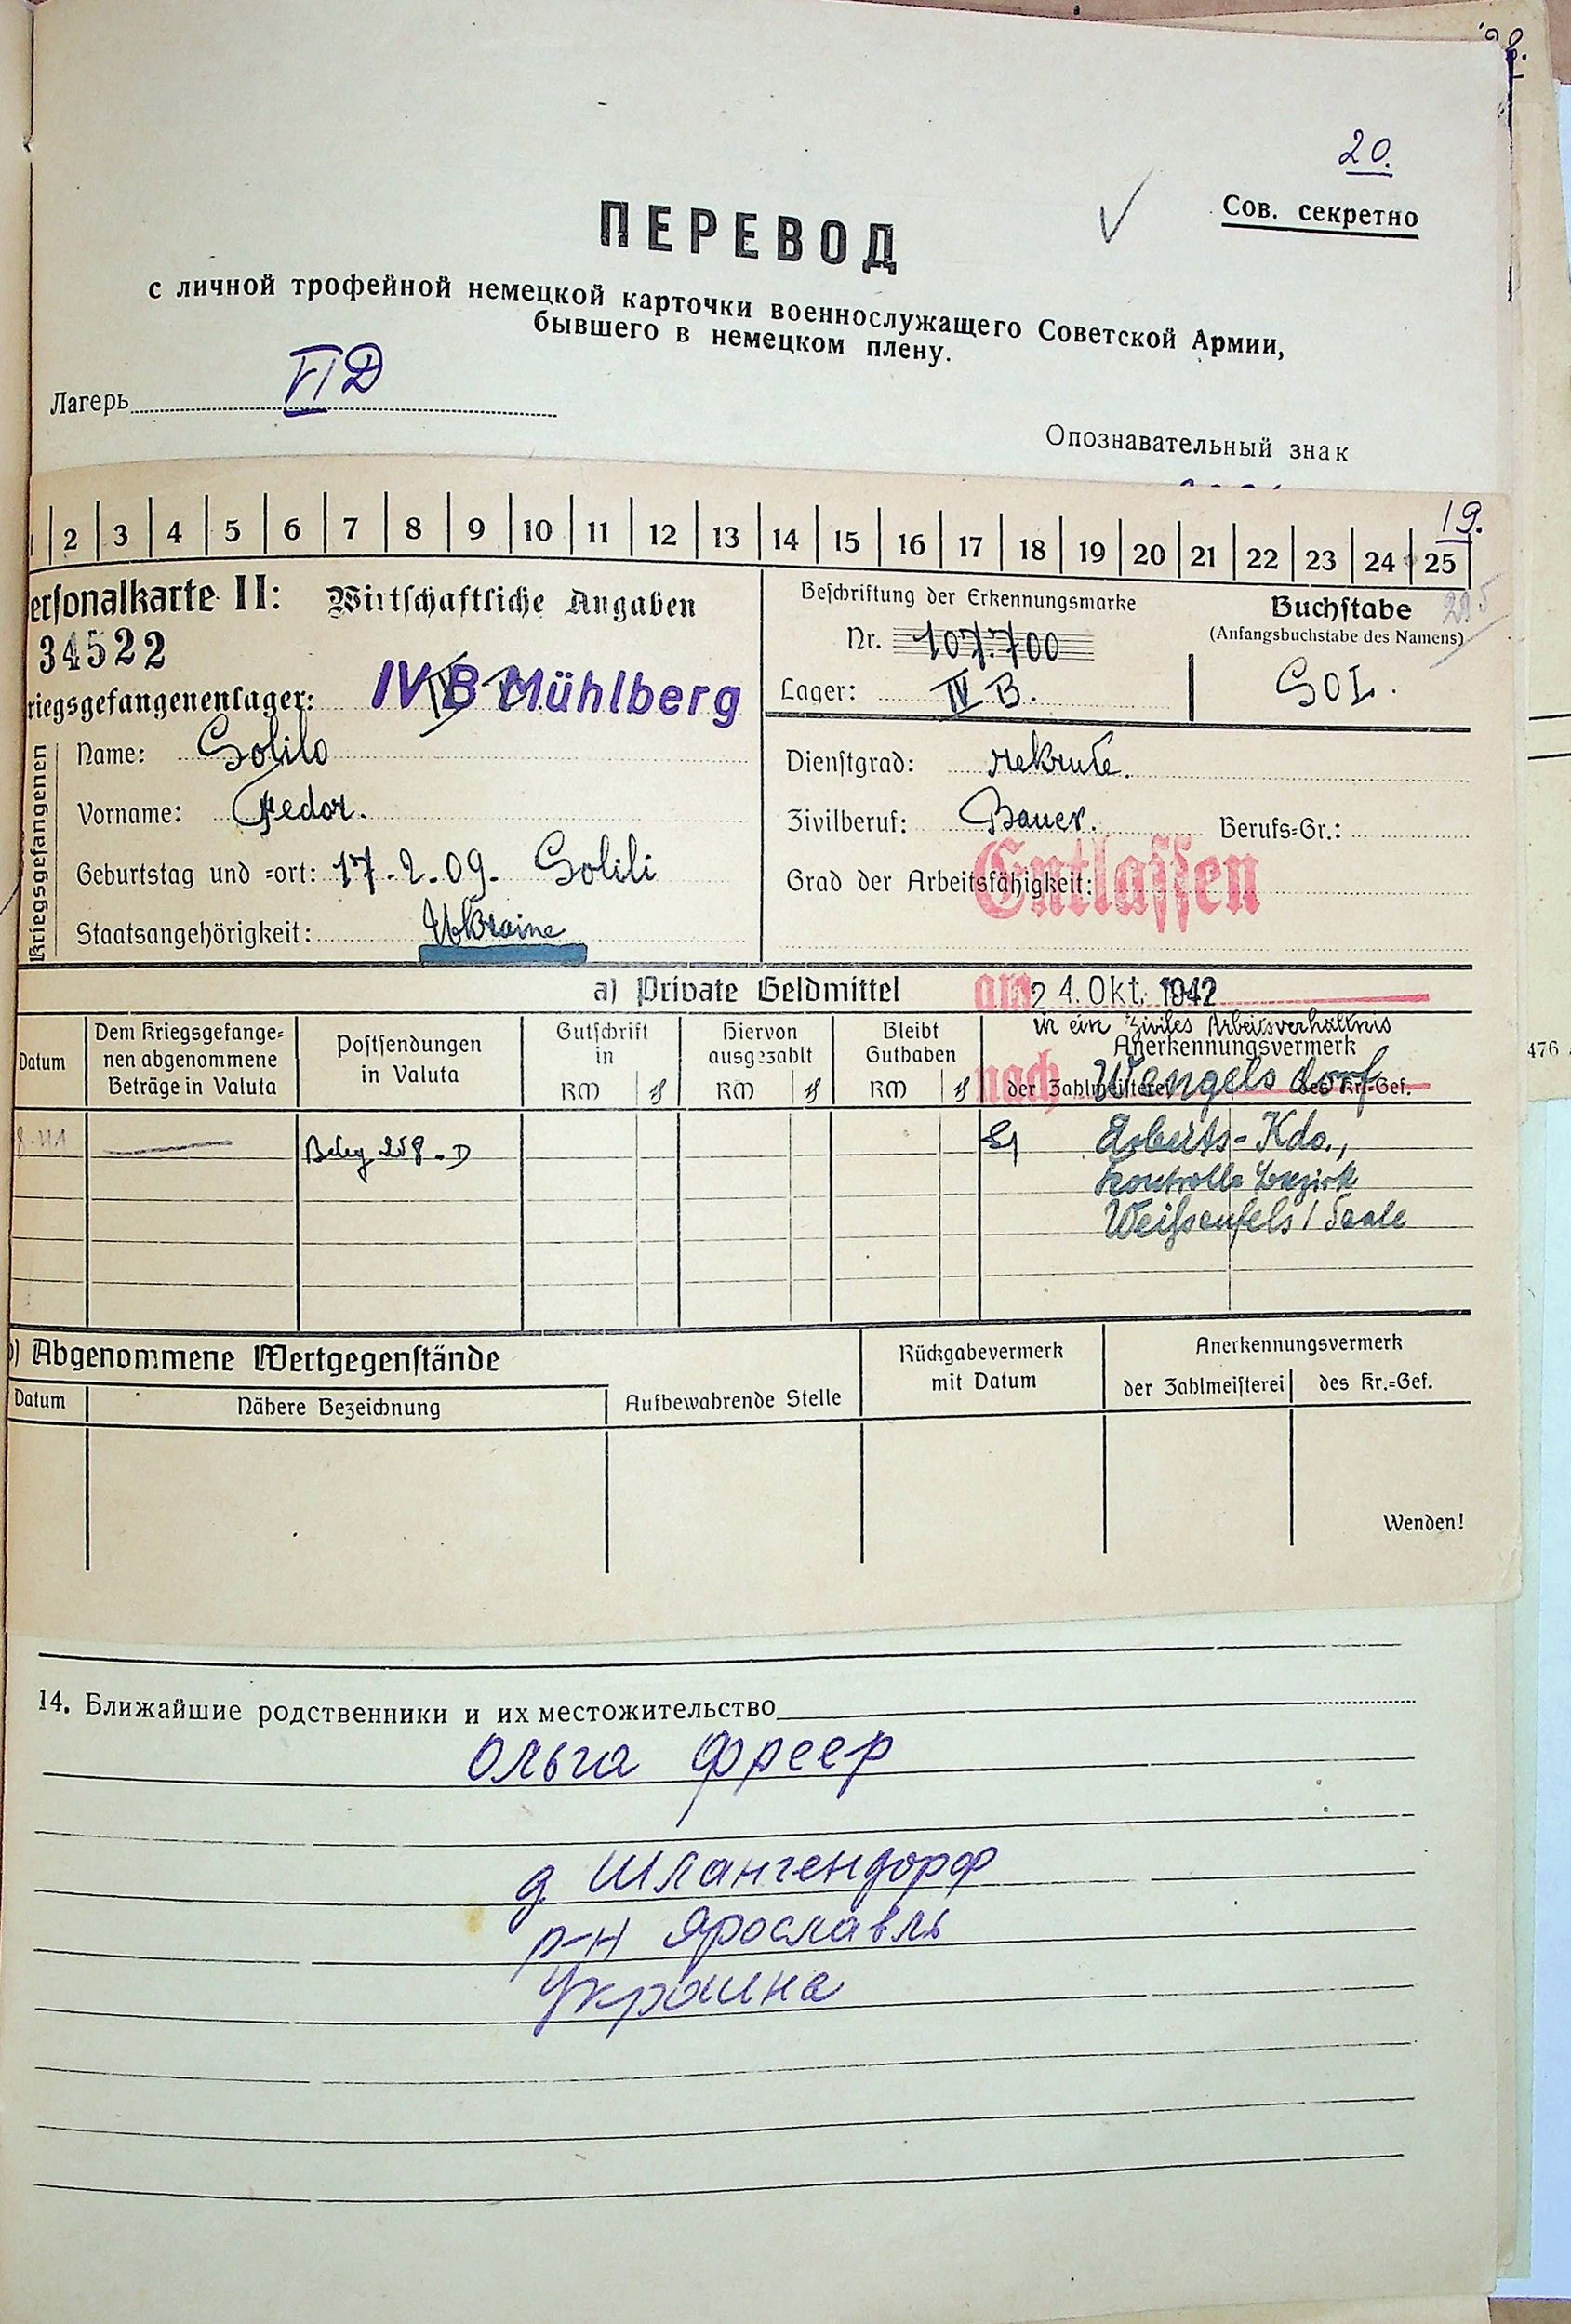 20.
Сов. секретно
ПЕРЕВОД
с личной трофейной немецкой карточки военнослужащего Советской Армии,
бывшего в немецком плену.
Лагерь VI Д
Опознавательный знак
19.
2 3 4 5 6 7 8 9 10 11 12 13 14 15 16 17 18 19 20 21 22 23 24 25
ersonalkarte II: Wirtschaftliche Angaben
34522
riegsgefangenenlager: IV B Mühlberg
Beschriftung der Erkennungsmarke
Nr. 107.700
Lager: IV B.
Buchstabe
(Anfangsbuchstabe des Namens)
SOL.
Kriegsgefangenen
Name: Solilo
Vorname: Fedor.
Geburtstag und =ort: 17.2.09. Solili
Staatsangehörigkeit: Ukraine
Dienstgrad: rekrute.
Zivilberuf: Bauer. Berufs=Gr.:
Grad der Arbeitsfähigkeit:
Entlassen
a) Private Geldmittel
am 24. Okt. 1942
in ein ziviles Arbeitsverhältnis
nach Wengelsdorf
Datum
Dem Kriegsgefange=
nen abgenommene
Beträge in Valuta
Postsendungen
in Valuta
Gutschrift
in
RM ₰
Hiervon
ausgezahlt
RM ₰
Bleibt
Guthaben
RM ₰
Anerkennungsvermerk
der Zahlmeisterei des Kr.=Gef.
Beleg 258. D
Arbeits-Kdo.,
Kontrolle bezirk
Weißenfels / Saale
) Abgenommene Wertgegenstände
Datum
Nähere Bezeichnung
Aufbewahrende Stelle
Rückgabevermerk
mit Datum
Anerkennungsvermerk
der Zahlmeisterei des Kr.=Gef.
Wenden!
14. Ближайшие родственники и их местожительство
Ольга Фреер
д Шлангендорф
р-н Ярославль
Украина
476